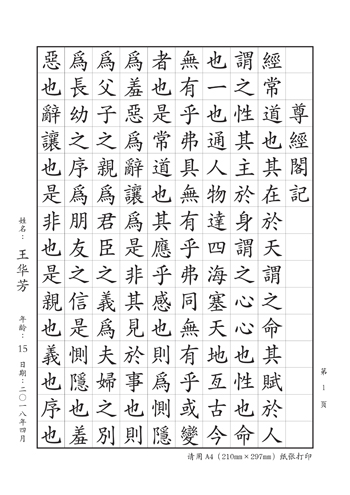 尊經閣記
經常道也其在於天謂之命其賦於人
謂之性其主於身謂之心心也性也命
也一也通人物達四海塞天地亙古今
無有乎弗具無有乎弗同無有乎或變
者也是常道也其應乎感也則爲惻隱
爲羞惡爲辭讓爲是非其見於事也則
爲父子之親爲君臣之義爲夫婦之別
爲長幼之序爲朋友之信是惻隱也羞
惡也辭讓也是非也是親也義也序也
姓名：王华芳 年龄：15 日期：二〇一八年四月
第 1 页
请用 A4（210mm×297mm）纸张打印